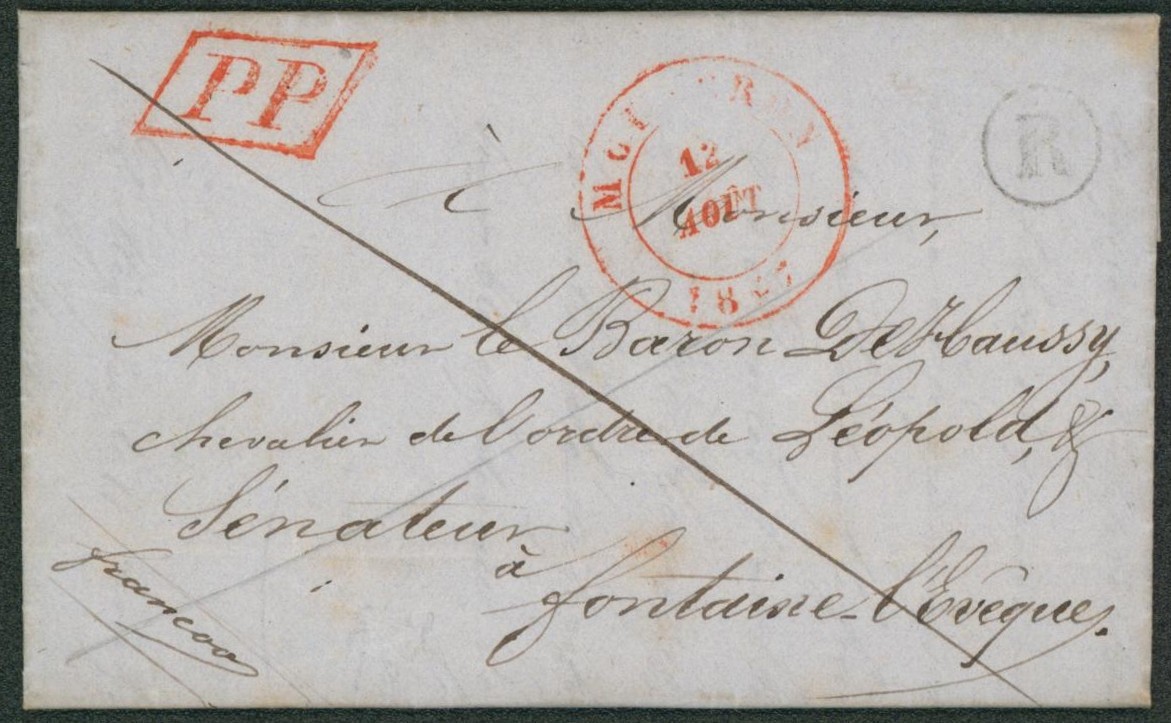 PP
12
AOÛT
R
à Monsieur,
Monsieur le Baron De Haussy,
chevalier de l'ordre de Léopold, &
Sénateur
à fontaine-l'Evêque,
franco